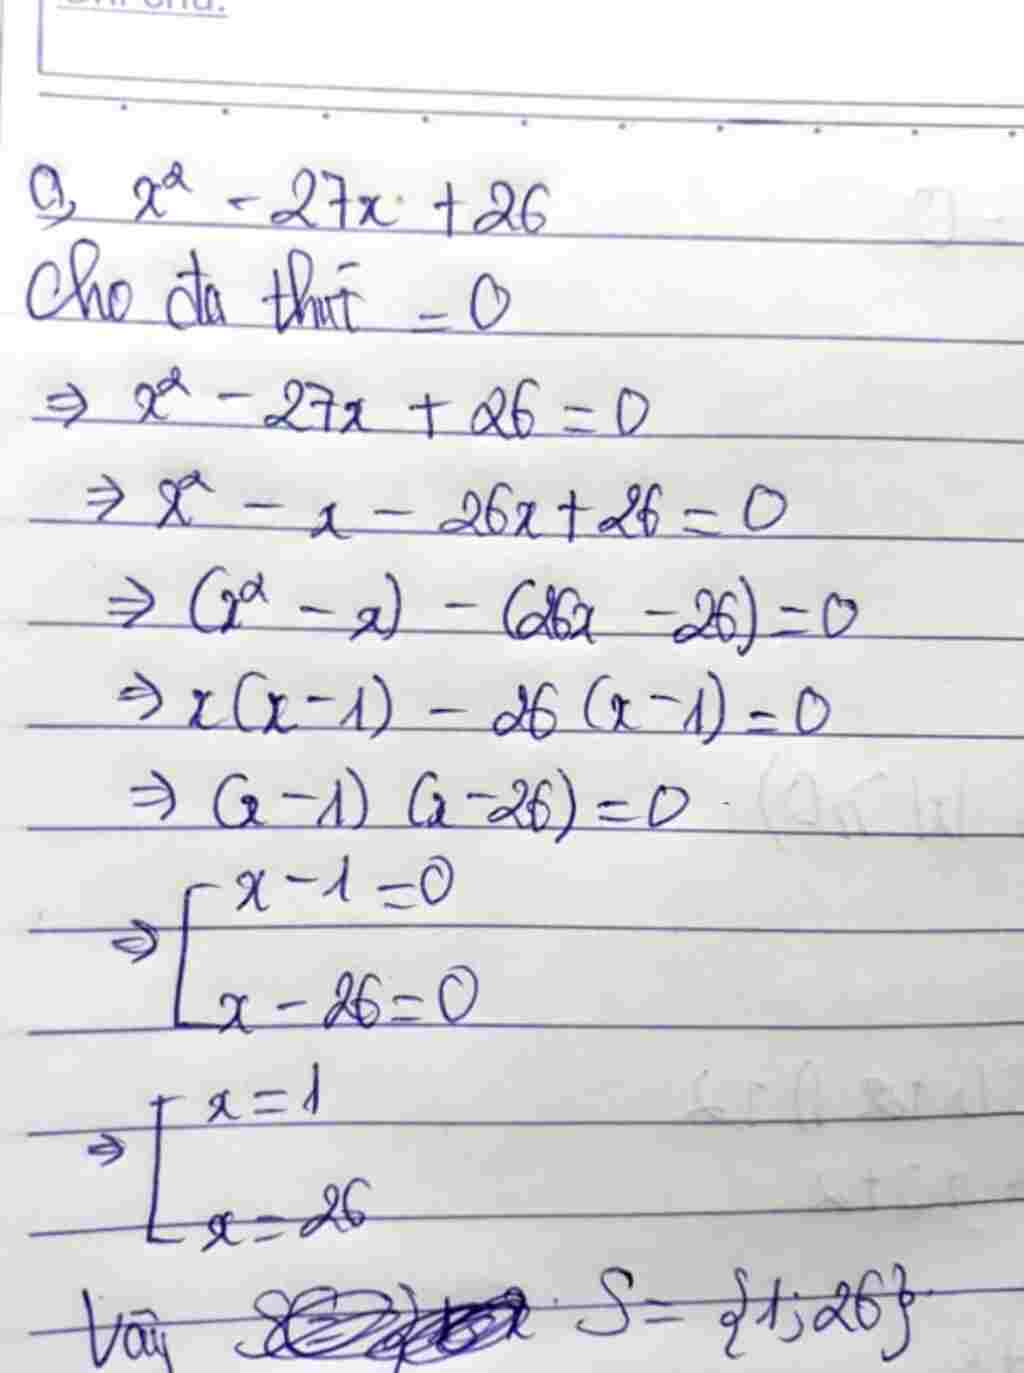 a, x² - 27x + 26
Cho đa thức = 0
⇒ x² - 27x + 26 = 0
⇒ x² - x - 26x + 26 = 0
⇒ (x² - x) - (26x - 26) = 0
⇒ x(x - 1) - 26(x - 1) = 0
⇒ (x - 1) (x - 26) = 0
⇒ [ x - 1 = 0
x - 26 = 0
⇒ [ x = 1
x = 26
Vậy S = {1; 26}